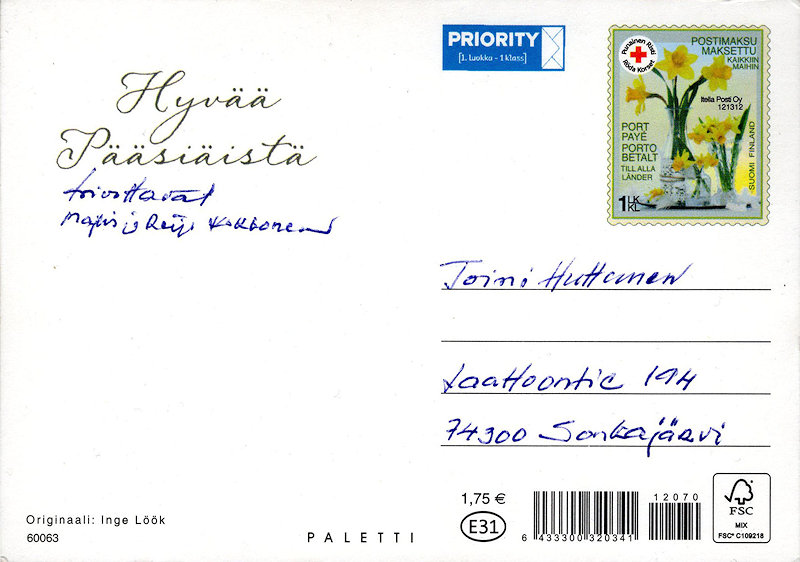 PRIORITY
[1. luokka - 1 klass]
Punainen Risti
Röda Korset
POSTIMAKSU
MAKSETTU
KAIKKIIN
MAIHIN
Itella Posti Oy
121312
PORT
PAYÉ
PORTO
BETALT
TILL ALLA
LÄNDER
SUOMI FINLAND
1 LK
KL
Hyvää
Pääsiäistä
toivottavat
ja Reijo
Toini Huttunen
194
74300 Sonkajärvi
Originaali: Inge Löök
60063
PALETTI
1,75 €
E31
6 433300 320341
12070
FSC
MIX
FSC® C109218